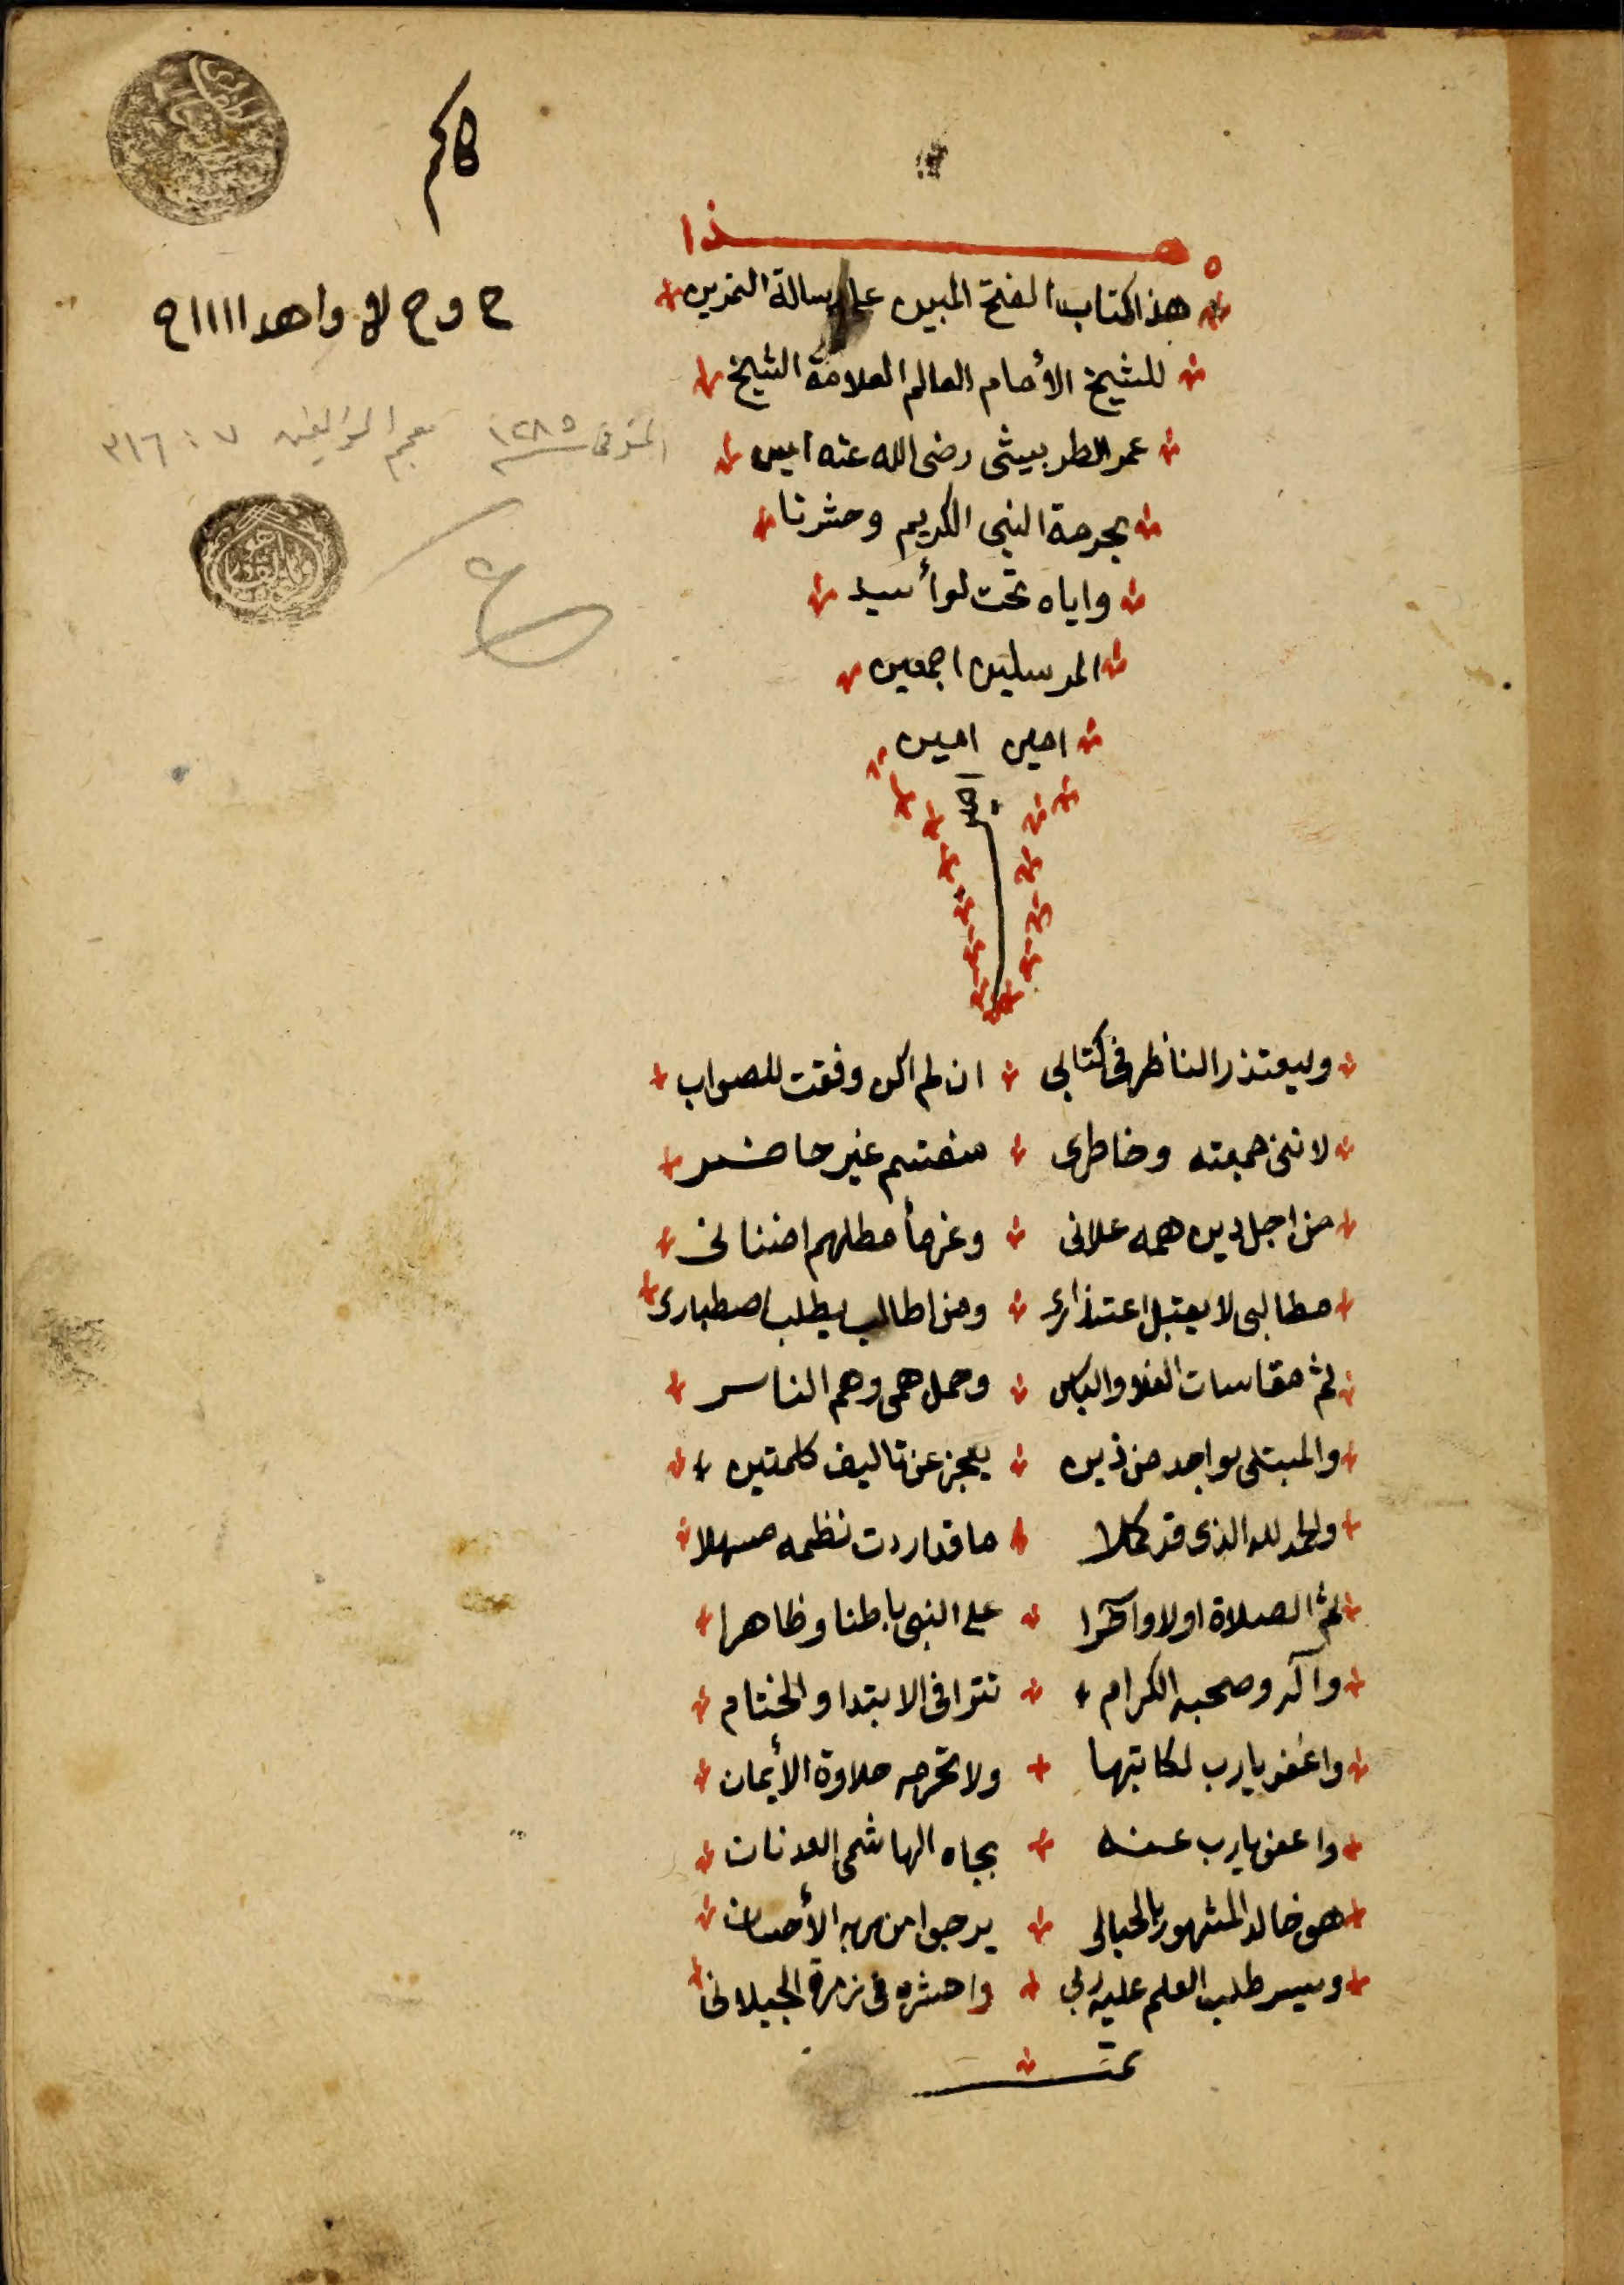 هذا
هذا الكتاب الفتح المبين على رسالة التمرين
للشيخ الأمام العالم العلامة الشيخ
عمر الطربيشى رضى الله عنه امين
بحرمة النبى الكريم وحشرنا
واياه تحت لوأ سيد
المرسلين اجمعين
امين امين
المتوفى ١٢٨٥ معجم المؤلفين ٧ : ٣١٦
وليعتذر الناظر فى كتابى ان لم اكن وفقت للصواب
لاننى جمعته وخاطرى منقسم غير حاضر
من اجل دين همه علانى وغرمأ مطلهم اضنانى
مطالبى لا يقبل اعتذارى ومن اطالب يطلب اصطبارى
ثم مقاسات الغلا والباس وحمل همى وهم الناس
والمبتلى بواحد من ذين يعجز عن تاليف كلمتين
والحمد لله الذى قد كملا ما قد اردت نظمه مسهلا
ثم الصلاة اولا واخرا على النبى باطنا وظاهرا
وآله وصحبه الكرام تترا فى الابتدا والختام
واغفر يارب لكاتبها ولا تحرمه حلاوة الأيمان
واعفى يارب عنه بجاه الهاشمى العدنان
هو خالد المشهور بالحبالى يرجوا من ربه الأحسان
ويسر طلب العلم عليه ربى واحشره فى زمرة الجيلانى
تمت